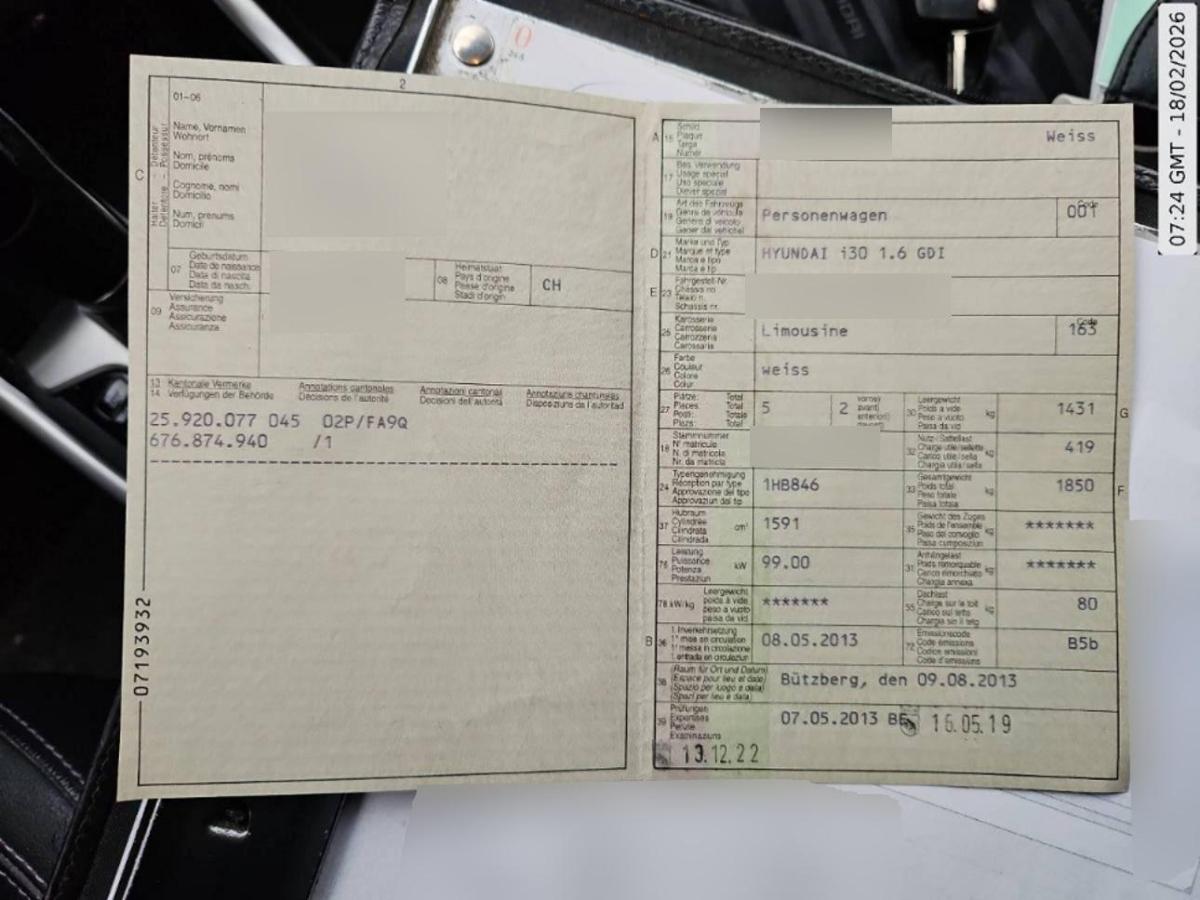 07:24 GMT - 18/02/2026
2
01-06
Name, Vornamen
Wohnort
Nom, prénoms
Domicile
Cognome, nomi
Domicilio
Num, prenums
Domicil
C
Halter - Détenteur
Detentore - Possessur
07
Geburtsdatum
Date de naissance
Data di nascita
Data da nasch.
08
Heimatstaat
Pays d'origine
Paese d'origine
Stadi d'origin
CH
09
Versicherung
Assurance
Assicurazione
Assicuranza
13
14
Kantonale Vermerke
Verfügungen der Behörde
Annotations cantonales
Décisions de l'autorité
Annotazioni cantonali
Decisioni dell'autorità
Annotaziuns chantunalas
Disposiziuns da l'autoritad
25.920.077 045 02P/FA9Q
676.874.940 /1
07193932
A
15
Schild
Plaque
Targa
Numer
Weiss
17
Bes. Verwendung
Usage spécial
Uso speciale
Diever spezial
19
Art des Fahrzeugs
Genre de véhicule
Genere di veicolo
Gener dal vehichel
Personenwagen
Code
001
D
21
Marke und Typ
Marque et type
Marca e tipo
Marca e tip
HYUNDAI i30 1.6 GDI
E
23
Fahrgestell-Nr.
Châssis no
Telaio n.
Schassis nr.
25
Karosserie
Carrosserie
Carrozzeria
Carossaria
Limousine
Code
163
26
Farbe
Couleur
Colore
Colur
weiss
27
Plätze: Total
Places: Total
Posti: Totale
Plazs: Total
5
2
vorne)
avant)
anteriori)
30
Leergewicht
Poids à vide
Peso a vuoto
Paisa da vid
kg
1431
G
18
Stammnummer
N° matricule
N. di matricola
Nr. da matricla
32
Nutz-/Sattellast
Charge utile/sellette
Carico utile/sella
Chargia utila/sella
kg
419
24
Typengenehmigung
Réception par type
Approvazione del tipo
Approvaziun dal tip
1HB846
33
Gesamtgewicht
Poids total
Peso totale
Paisa totala
kg
1850
F
37
Hubraum
Cylindrée
Cilindrata
Cilindrada
cm³
1591
35
Gewicht des Zuges
Poids de l'ensemble
Peso del convoglio
Paisa cumposiziun
kg
*******
76
Leistung
Puissance
Potenza
Prestaziun
kW
99.00
31
Anhängelast
Poids remorquable
Carico rimorchiato
Chargia annexa
kg
*******
78 kW/kg
Leergewicht
poids à vide
peso a vuoto
paisa da vid
*******
55
Dachlast
Charge sur le toit
Carico sul tetto
Chargia sin il tetg
kg
80
B
36
1. Inverkehrsetzung
1re mise en circulation
1a messa in circolazione
1. entrada en circulaziun
08.05.2013
72
Emissionscode
Code émissions
Codice emissioni
Code d'emissiuns
B5b
38
(Raum für Ort und Datum)
(Espace pour lieu et date)
(Spazio per luogo e data)
(Spazi per lieu e data)
Bützberg, den 09.08.2013
39
Prüfungen
Expertises
Perizie
Examinaziuns
07.05.2013 BE
16.05.19
13.12.22